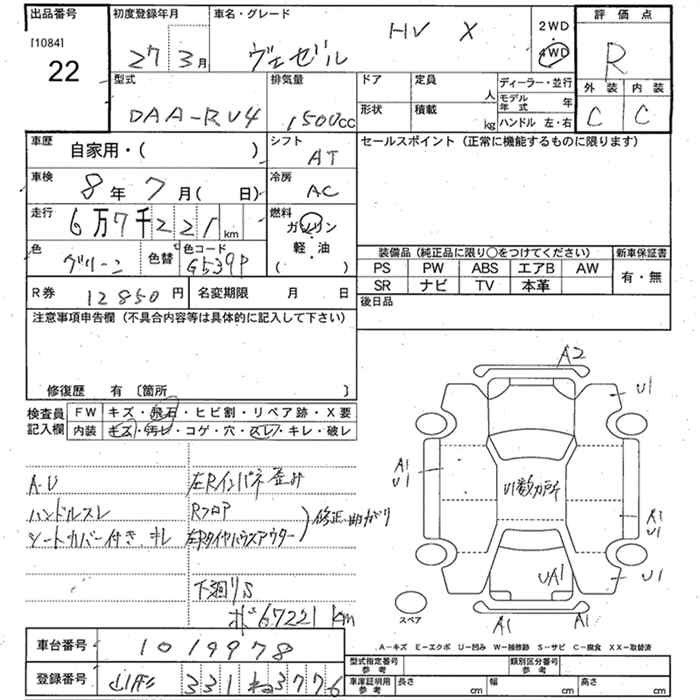 出品番号 初度登録年月 車名・グレード 2WD ・ 4WD 評価点
[1084] 22 27 3月 ヴェゼル HV X R
外装 内装
C C
型式 排気量 ドア 定員 人 ディーラー・並行
DAA-RU4 1500cc 形状 積載 kg モデル年式 年
ハンドル 左・右
車歴 自家用・( ) シフト AT セールスポイント (正常に機能するものに限ります)
車検 8年 7月( 日) 冷房 AC
走行 6万7千221km 燃料 ガソリン
軽・油
( )
色 グリーン 色替 色コード G539P
装備品 (純正品に限り○をつけてください) 新車保証書
PS PW ABS エアB AW 有・無
SR ナビ TV 本革
R券 12850円 名変期限 月 日 後日品
注意事項申告欄 (不具合内容等は具体的に記入して下さい)
修復歴 有 〔箇所 〕
検査員記入欄 FW キズ・飛石・ヒビ割・リペア跡・X要
内装 キズ・汚レ・コゲ・穴・スレ・キレ・破レ
A-U
ハンドルスレ
シートカバー付き、キレ
左Rインパネ歪み
Rフロア
左Rタイヤハウスアウター
修正・曲がり
下廻りS
ボs67221km
A2
U1
A1
U1
U1数カ所
A1
U1
UA1
U1
A1
A1
スペア
A-キズ E-エクボ U-凹み W-補修跡 S-サビ C-腐食 XX-取替済
車台番号 1019978
登録番号 331 ね3776
型式指定番号参考 類別区分番号
車庫証明用参考 長さ cm 幅 cm 高さ cm